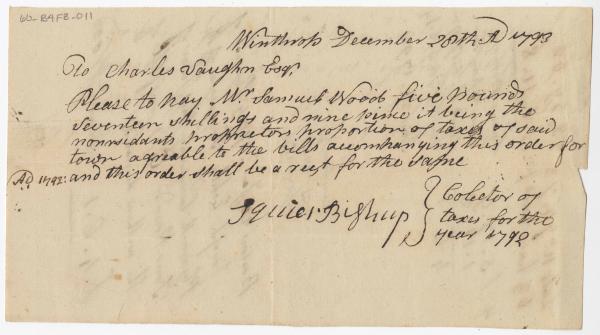 66-B4F8-011
Winthrop December 28th AD 1793
To Charles Vaughn Esqr
Please to pay Mr Samuel Wood five pounds
seventeen shillings and nine pence it being the
nonresidants propractors proportion of taxes of said
town agreable to the bills accompanying this order for
AD 1792: and this order shall be a rect for the same
Squier Bishup
Colector of
taxes for the
year 1792